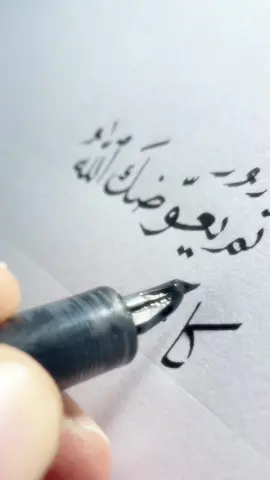 ثُمَّ يُعَوِّضَكَ اللهُ
كا